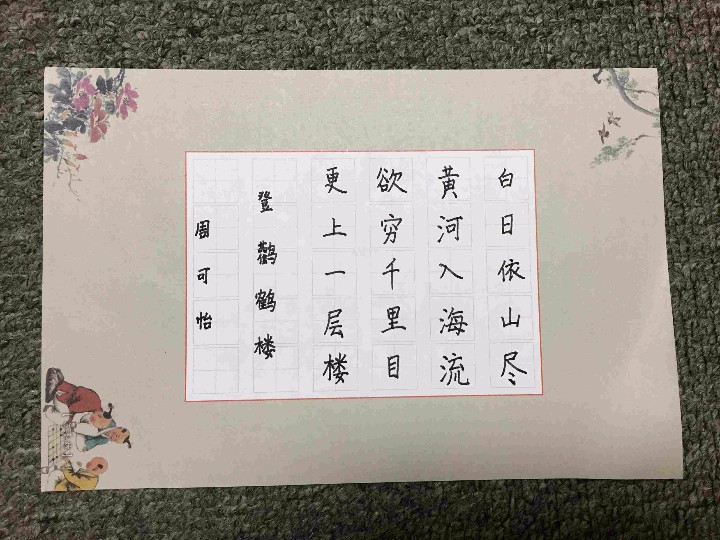 白日依山尽
黄河入海流
欲穷千里目
更上一层楼
登鹳鹤楼
周可怡